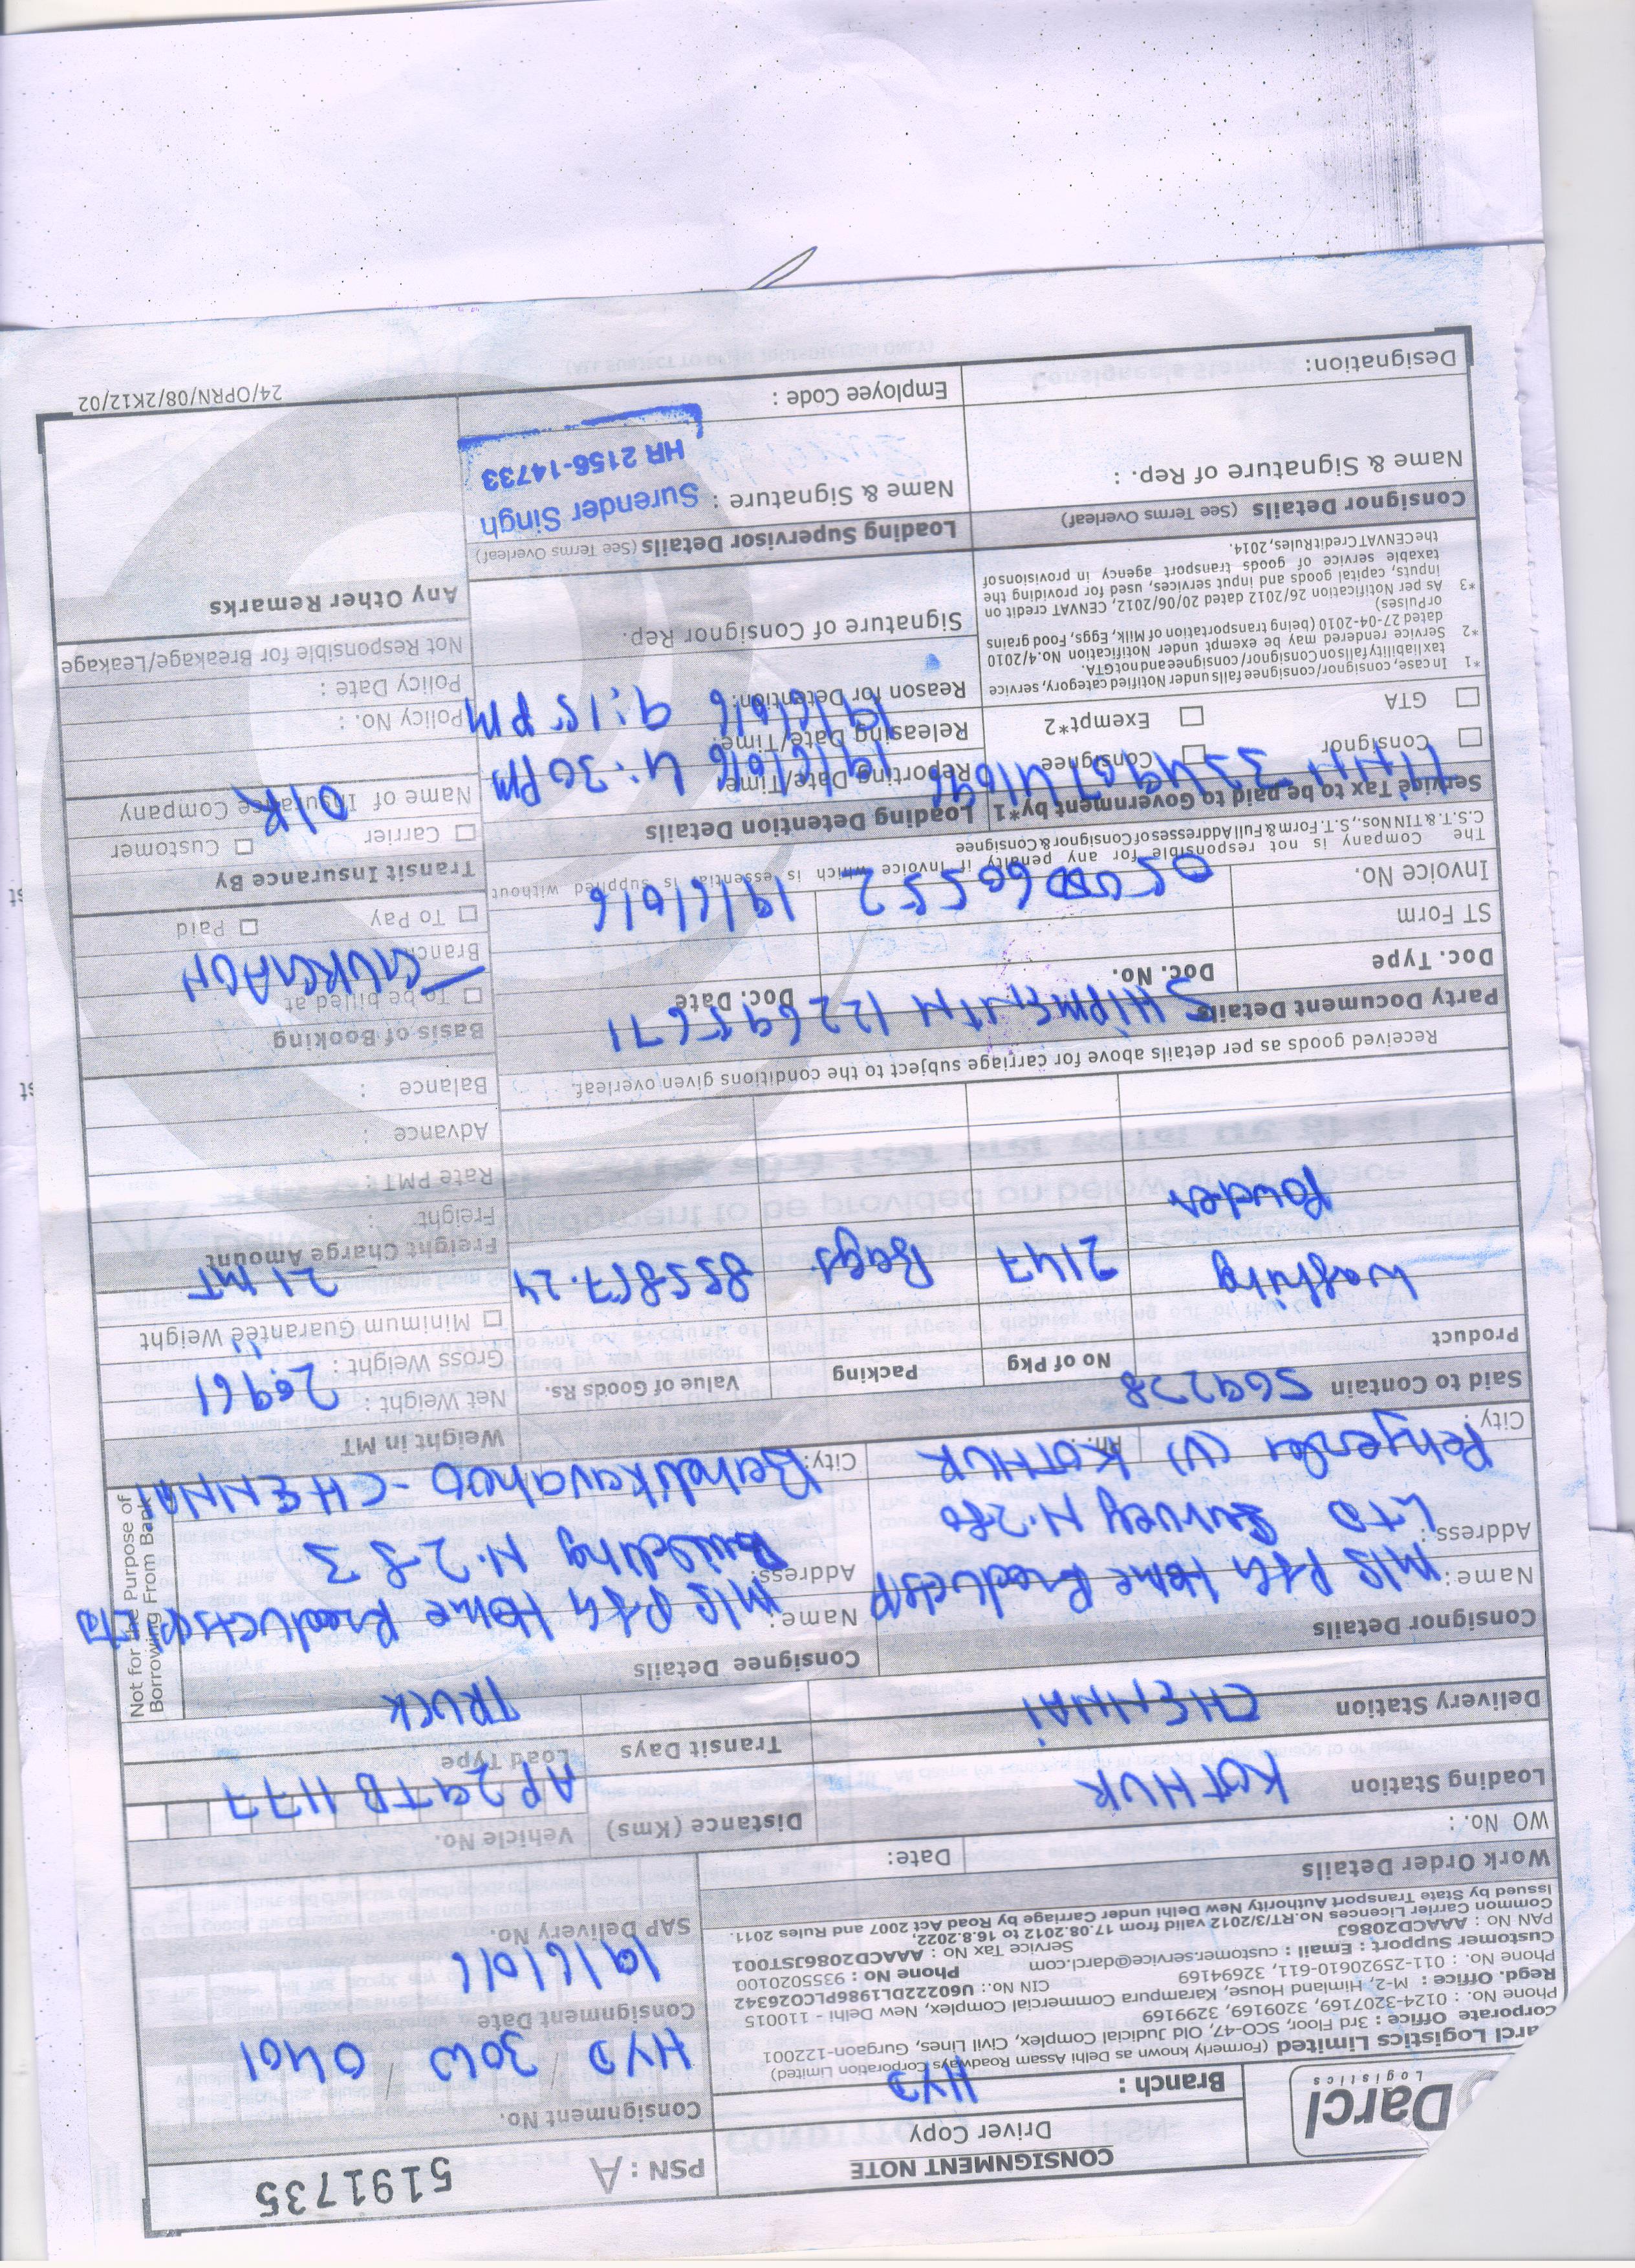 Darcl
Logistics
CONSIGNMENT NOTE
Driver Copy
Branch : HYD
PSN : A 5191735
arcl Logistics Limited (Formerly known as Delhi Assam Roadways Corporation Limited)
Corporate Office : 3rd Floor, SCO-47, Old Judicial Complex, Civil Lines, Gurgaon-122001
Phone No. : 0124-3207169, 3209169, 3299169
Regd. Office : M-2, Himland House, Karampura Commercial Complex, New Delhi - 110015
Phone No. : 011-25920610-611, 32694169 CIN No.: U60222DL1986PLCO26342
Customer Support : Email : customer.service@darcl.com Phone No : 9355020100
PAN No : AAACD2086J Service Tax No : AAACD2086JST001
Common Carrier Licences No.RT/3/2012 valid from 17.08.2012 to 16.8.2022,
Issued by State Transport Authority New Delhi under Carriage by Road Act 2007 and Rules 2011.
Consignment No.
HYD / 30W / 0401
Consignment Date
19/6/016
SAP Delivery No.
Work Order Details
WO No. : Date:
Loading Station KOTHUR
Distance (Kms)
Vehicle No.
AP29TB1177
Delivery Station CHENNAI
Transit Days
Load Type
TRUCK
Consignor Details
Name: M/S P&G Home Products P
Address : LTD Survey N.280
City : (V) KOTHUR
Consignee Details
Name: M/S P&G Home Products P LTD
Address: Building N.2 & 3
City: - CHENNAI
Not for the Purpose of
Borrowing From Bank
Said to Contain 569278
Product
No of Pkg
Packing
Value of Goods Rs.
Washing 2147 Bags 855857.24
Powder
Weight in MT
Net Weight : 20.961
Gross Weight : "
Minimum Guarantee Weight
21 MT
Freight Charge Amount
Freight :
Rate PMT :
Advance :
Balance :
Received goods as per details above for carriage subject to the conditions given overleaf.
Party Document Details SHIPMENT N 122695671
Doc. Type
Doc. No.
Doc. Date
ST Form
Invoice No. 0500060552 19/6/016
The Company is not responsible for any penalty if invoice which is essential is supplied without
C.S.T. & TIN Nos., S.T. Form & Full Addresses of Consignor & Consignee
Basis of Booking
To be billed at
Branch GURGAON
To Pay Paid
Transit Insurance By
Carrier Customer
Name of Insurance Company
O/R
Policy No. :
Policy Date :
Not Responsible for Breakage/Leakage
Any Other Remarks
Service Tax to be paid to Government by*1
Consignor Consignee
GTA Exempt*2
*1 In case, consignor/consignee falls under Notified category, service
tax liability falls on Consignor/ consignee and not GTA.
*2 Service rendered may be exempt under Notification No.4/2010
dated 27-04-2010 (being transportation of Milk, Eggs, Food grains
or Pulses)
*3 As per Notification 26/2012 dated 20/06/2012, CENVAT credit on
inputs, capital goods and input services, used for providing the
taxable service of goods transport agency in provisions of
the CENVAT Credit Rules, 2014.
Loading Detention Details
Reporting Date/Time: 19/6/016 4:30 PM
Releasing Date/Time: 19/6/016 9:15 PM
Reason for Detention:
Signature of Consignor Rep.
Consignor Details (See Terms Overleaf)
Name & Signature of Rep. :
Designation:
Loading Supervisor Details (See Terms Overleaf)
Name & Signature : Surender Singh
HR 2156-14733
Employee Code :
24/OPRN/08/2K12/02